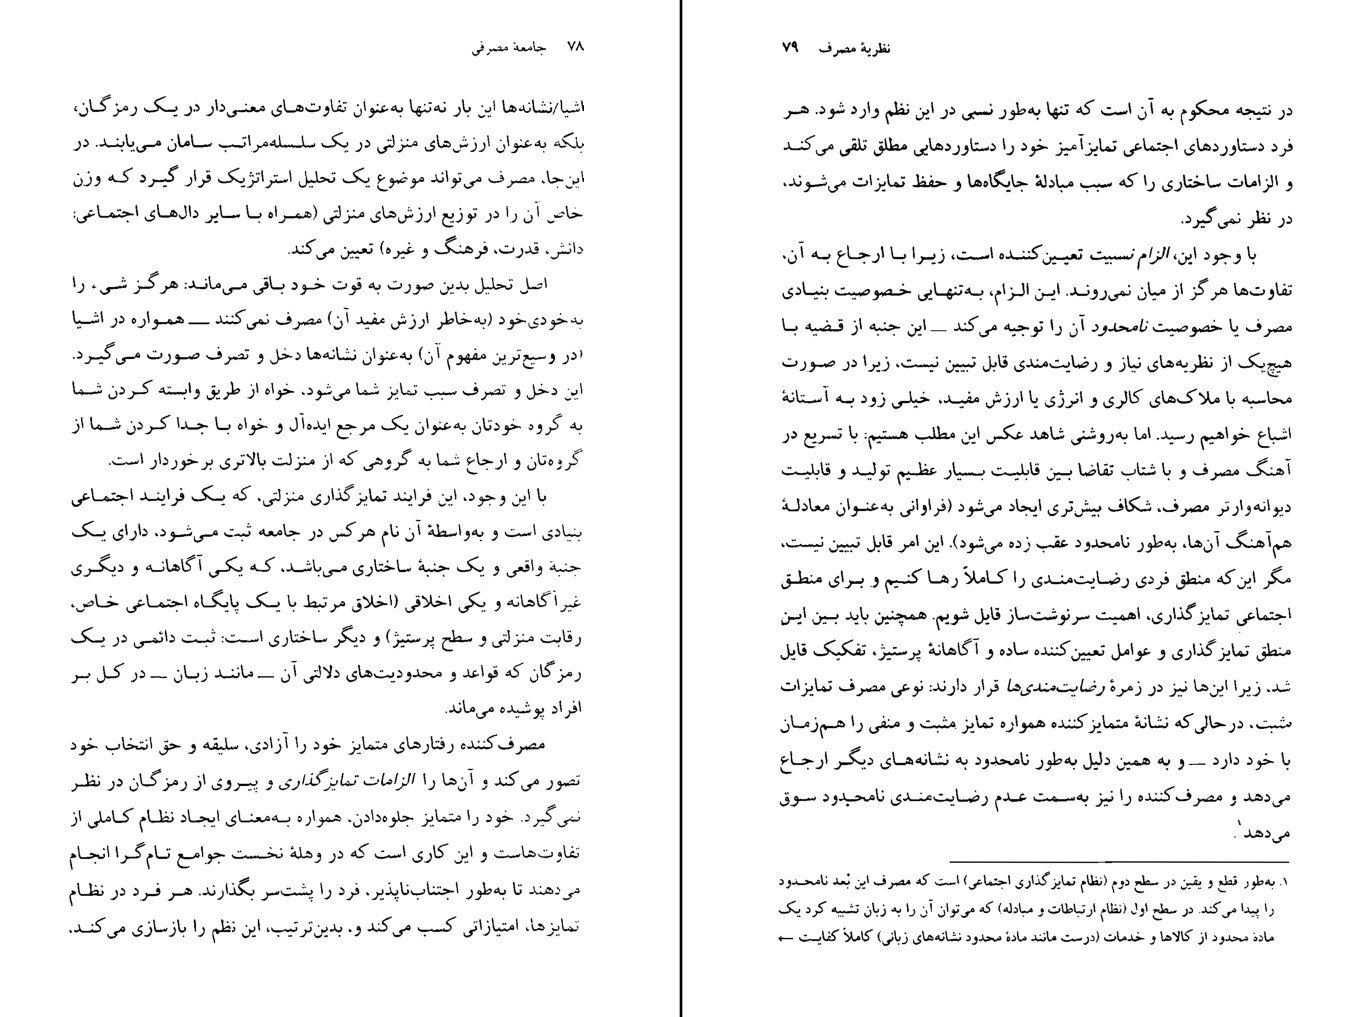 ۷۸ جامعهٔ مصرفی
اشیا/نشانه‌ها این بار نه‌تنها به‌عنوان تفاوت‌های معنی‌دار در یک رمزگان،
بلکه به‌عنوان ارزش‌های منزلتی در یک سلسله‌مراتب سامان می‌یابند. در
این‌جا، مصرف می‌تواند موضوع یک تحلیل استراتژیک قرار گیرد که وزن
خاص آن را در توزیع ارزش‌های منزلتی (همراه با سایر دال‌های اجتماعی:
دانش، قدرت، فرهنگ و غیره) تعیین می‌کند.
اصل تحلیل بدین صورت به قوت خود باقی می‌ماند: هرگز شیء را
به‌خودی‌خود (به‌خاطر ارزش مفید آن) مصرف نمی‌کنند ــ همواره در اشیا
(در وسیع‌ترین مفهوم آن) به‌عنوان نشانه‌ها دخل و تصرف صورت می‌گیرد.
این دخل و تصرف سبب تمایز شما می‌شود، خواه از طریق وابسته کردن شما
به گروه خودتان به‌عنوان یک مرجع ایده‌آل و خواه با جدا کردن شما از
گروه‌تان و ارجاع شما به گروهی که از منزلت بالاتری برخوردار است.
با این وجود، این فرایند تمایزگذاری منزلتی، که یک فرایند اجتماعی
بنیادی است و به‌واسطهٔ آن نام هرکس در جامعه ثبت می‌شود، دارای یک
جنبهٔ واقعی و یک جنبهٔ ساختاری می‌باشد، که یکی آگاهانه و دیگری
غیرآگاهانه و یکی اخلاقی (اخلاق مرتبط با یک پایگاه اجتماعی خاص،
رقابت منزلتی و سطح پرستیژ) و دیگر ساختاری است: ثبت دائمی در یک
رمزگان که قواعد و محدودیت‌های دلالتی آن ــ مانند زبان ــ در کل بر
افراد پوشیده می‌ماند.
مصرف‌کننده رفتارهای متمایز خود را آزادی، سلیقه و حق انتخاب خود
تصور می‌کند و آن‌ها را الزامات تمایزگذاری و پیروی از رمزگان در نظر
نمی‌گیرد. خود را متمایز جلوه‌دادن، همواره به‌معنای ایجاد نظام کاملی از
تفاوت‌هاست و این کاری است که در وهلهٔ نخست جوامع تام‌گرا انجام
می‌دهند تا به‌طور اجتناب‌ناپذیر، فرد را پشت‌سر بگذارند. هر فرد در نظام
تمایزها، امتیازاتی کسب می‌کند و، بدین‌ترتیب، این نظم را بازسازی می‌کند،
نظریهٔ مصرف ۷۹
در نتیجه محکوم به آن است که تنها به‌طور نسبی در این نظم وارد شود. هر
فرد دستاوردهای اجتماعی تمایزآمیز خود را دستاوردهایی مطلق تلقی می‌کند
و الزامات ساختاری را که سبب مبادلهٔ جایگاه‌ها و حفظ تمایزات می‌شوند،
در نظر نمی‌گیرد.
با وجود این، الزام نسبیت تعیین‌کننده است، زیرا با ارجاع به آن،
تفاوت‌ها هرگز از میان نمی‌روند. این الزام، به‌تنهایی خصوصیت بنیادی
مصرف یا خصوصیت نامحدود آن را توجیه می‌کند ــ این جنبه از قضیه با
هیچ‌یک از نظریه‌های نیاز و رضایت‌مندی قابل تبیین نیست، زیرا در صورت
محاسبه با ملاک‌های کالری و انرژی یا ارزش مفید، خیلی زود به آستانهٔ
اشباع خواهیم رسید. اما به‌روشنی شاهد عکس این مطلب هستیم: با تسریع در
آهنگ مصرف و با شتاب تقاضا بین قابلیت بسیار عظیم تولید و قابلیت
دیوانه‌وارتر مصرف، شکاف بیش‌تری ایجاد می‌شود (فراوانی به‌عنوان معادلهٔ
هم‌آهنگ آن‌ها، به‌طور نامحدود عقب زده می‌شود). این امر قابل تبیین نیست،
مگر این‌که منطق فردی رضایت‌مندی را کاملاً رها کنیم و برای منطق
اجتماعی تمایزگذاری، اهمیت سرنوشت‌ساز قایل شویم. همچنین باید بین این
منطق تمایزگذاری و عوامل تعیین‌کننده ساده و آگاهانهٔ پرستیژ، تفکیک قایل
شد، زیرا این‌ها نیز در زمرهٔ رضایت‌مندی‌ها قرار دارند: نوعی مصرف تمایزات
مثبت، درحالی‌که نشانهٔ متمایزکننده همواره تمایز مثبت و منفی را هم‌زمان
با خود دارد ــ و به همین دلیل به‌طور نامحدود به نشانه‌های دیگر ارجاع
می‌دهد و مصرف‌کننده را نیز به‌سمت عدم رضایت‌مندی نامحدود سوق
می‌دهد۱.
۱. به‌طور قطع و یقین در سطح دوم (نظام تمایزگذاری اجتماعی) است که مصرف این بُعد نامحدود
را پیدا می‌کند. در سطح اول (نظام ارتباطات و مبادله) که می‌توان آن را به زبان تشبیه کرد یک
مادهٔ محدود از کالاها و خدمات (درست مانند مادهٔ محدود نشانه‌های زبانی) کاملاً کفایت ←